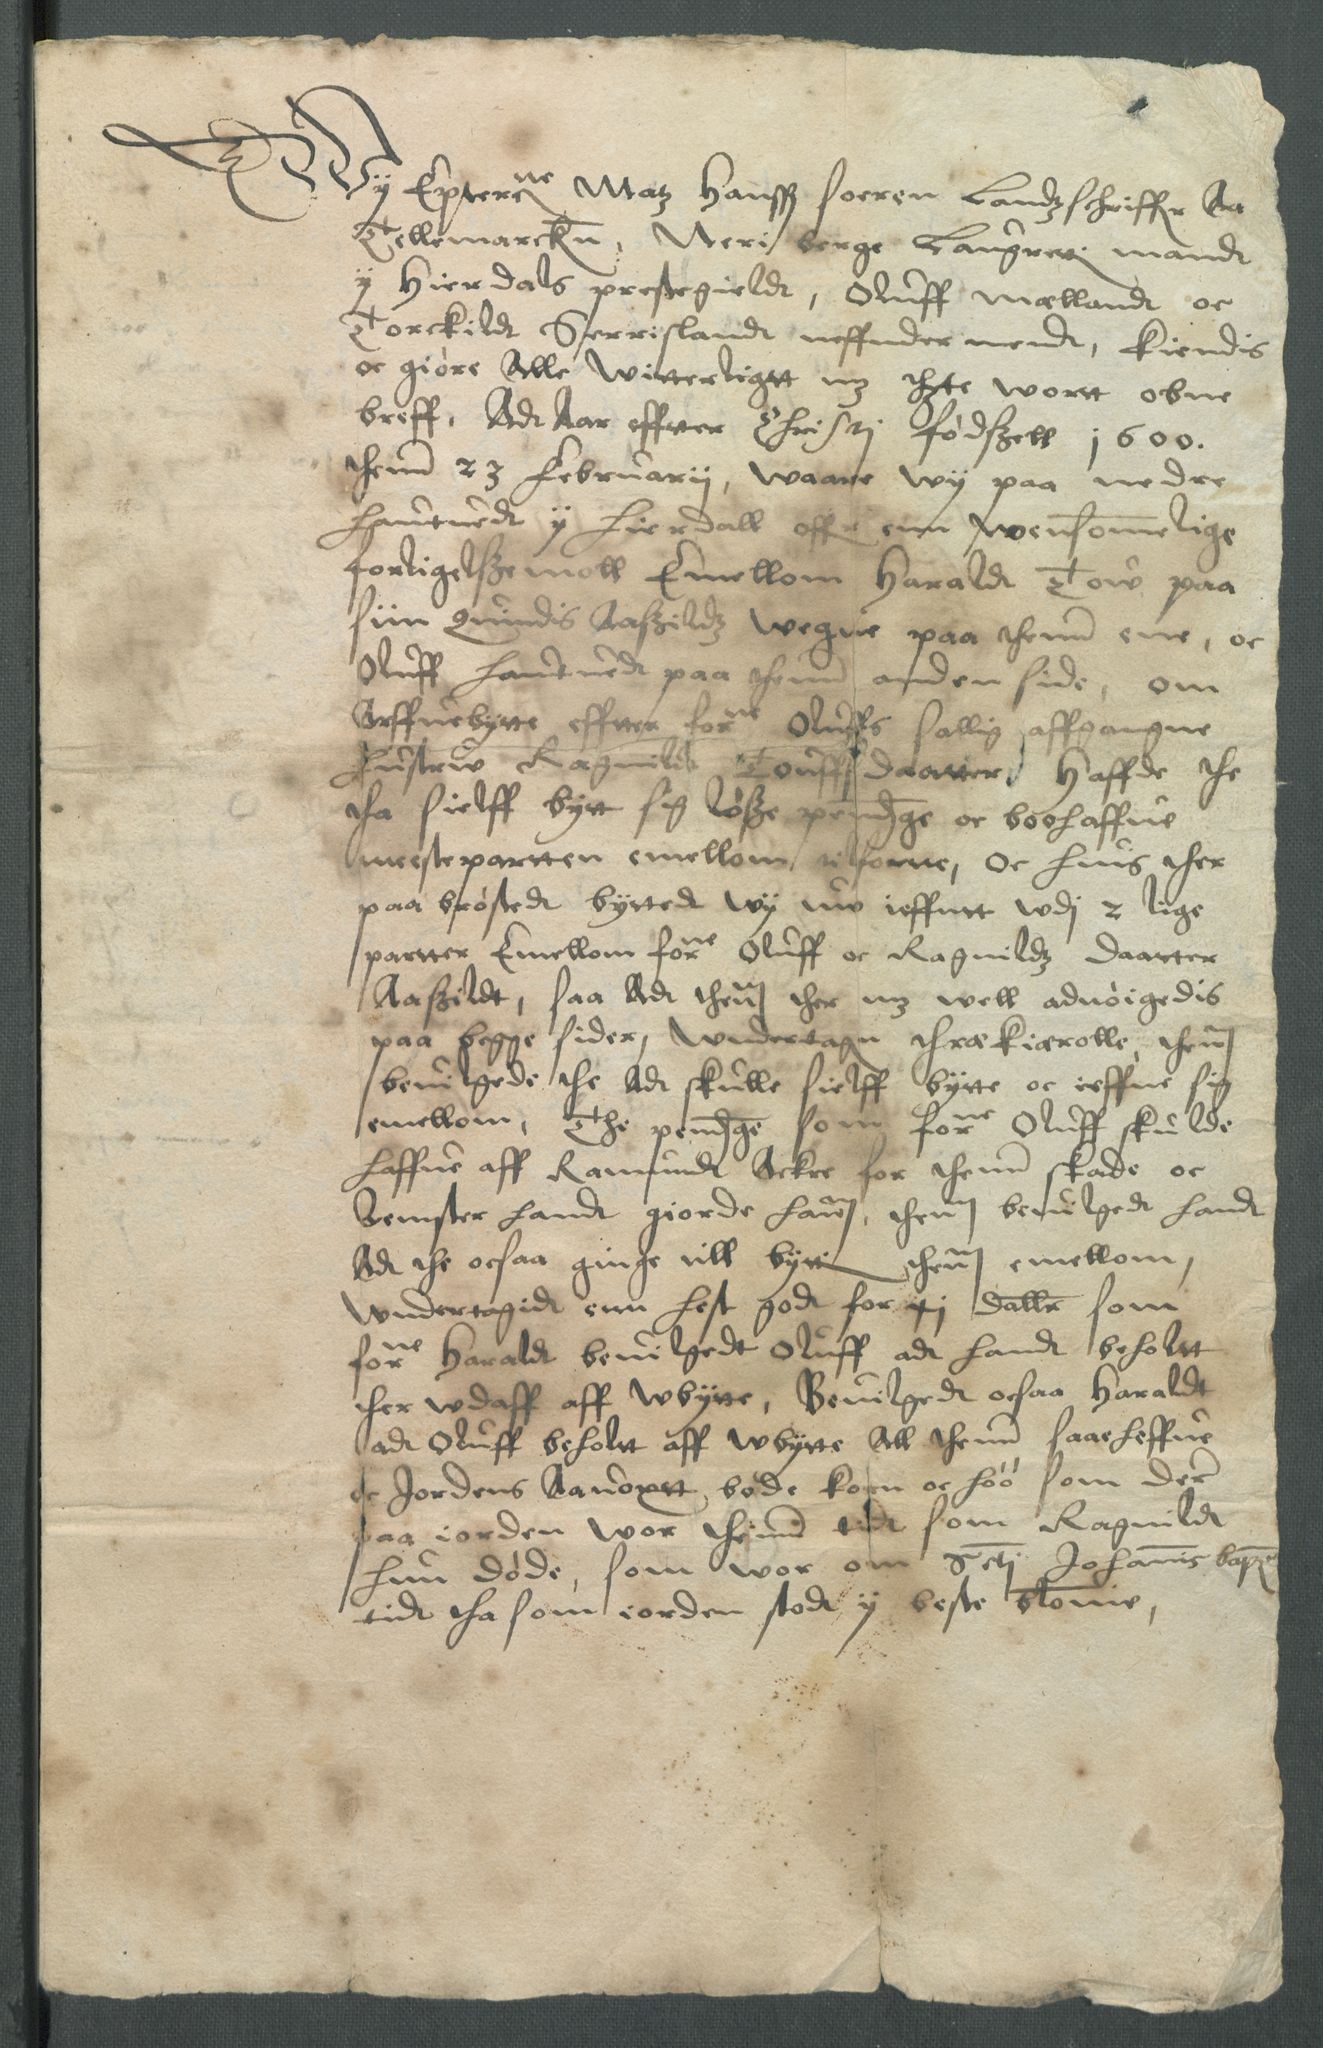 Wy Epterne Matz Hanssz soeren Landzschriffr Aa
Tellemarckn, Neri berge Laugrettz mandt
ÿ Hierdals prestegieldt, Oluff mellandt oc
Torckildt Serrislandt neffnder mendt, kiendis
oc giøre Alle Witterligtt mz thette wortt obne
breff, Adt Aar effter Christi fødszell 1600.
thenn 23 Februarij, waare wÿ paa nedre
hautuedt ÿ hierdall offr enn wensommelige
forligelszemoll Emellom Haraldt Tow paa
siin quindis Aaszildz wegne paa thenn ene, oc
Oluff hautuedt paa thenn anden side, om
Arffuebytte effter forne Oluffs sallig affgangne
hustrw Ragnildt Touffsdaatter, Haffde the
tha sielff bytt sig løsze pendge oc boohaffue
mestepartten emellom tilforne, Oc huis ther
paa brøstedt byttedt wÿ nw ieffntt wdj 2 lige
partter Emellom forne Oluff oc Ragnildz daatter
Aaszildt, saa Adt thennom ther mz well adnøigedis
paa begge sider, wndertagn threkierolle, thennom
beuilgede the Adt skulle sielff bytte oc ieffne sig
emellom, The pendge som forne Oluff skulde
haffue aff Ramundt Ackre for thenn skade oc
lemster handt giorde hannom, thennom beuilgedt handt
Adt the ocsaa ginge till bytte thennom emellom,
wndertagidt enn hest godt for xj dallr som
forne Haraldt beuilgedt Oluff adt handt beholtt
ther wdaff aff wbytte, Beuilgedt ocsaa Haraldt
adt Oluff beholtt aff wbytte All thenn saaeheffue
oc Jordens Aauoxtt, bode korn oc høø som der
paa iorden wor thenn tidt som Ragnildt
hun døde, som wor om Sctj Johannis bapte
tidt tha som iorden stodt ÿ beste blome,